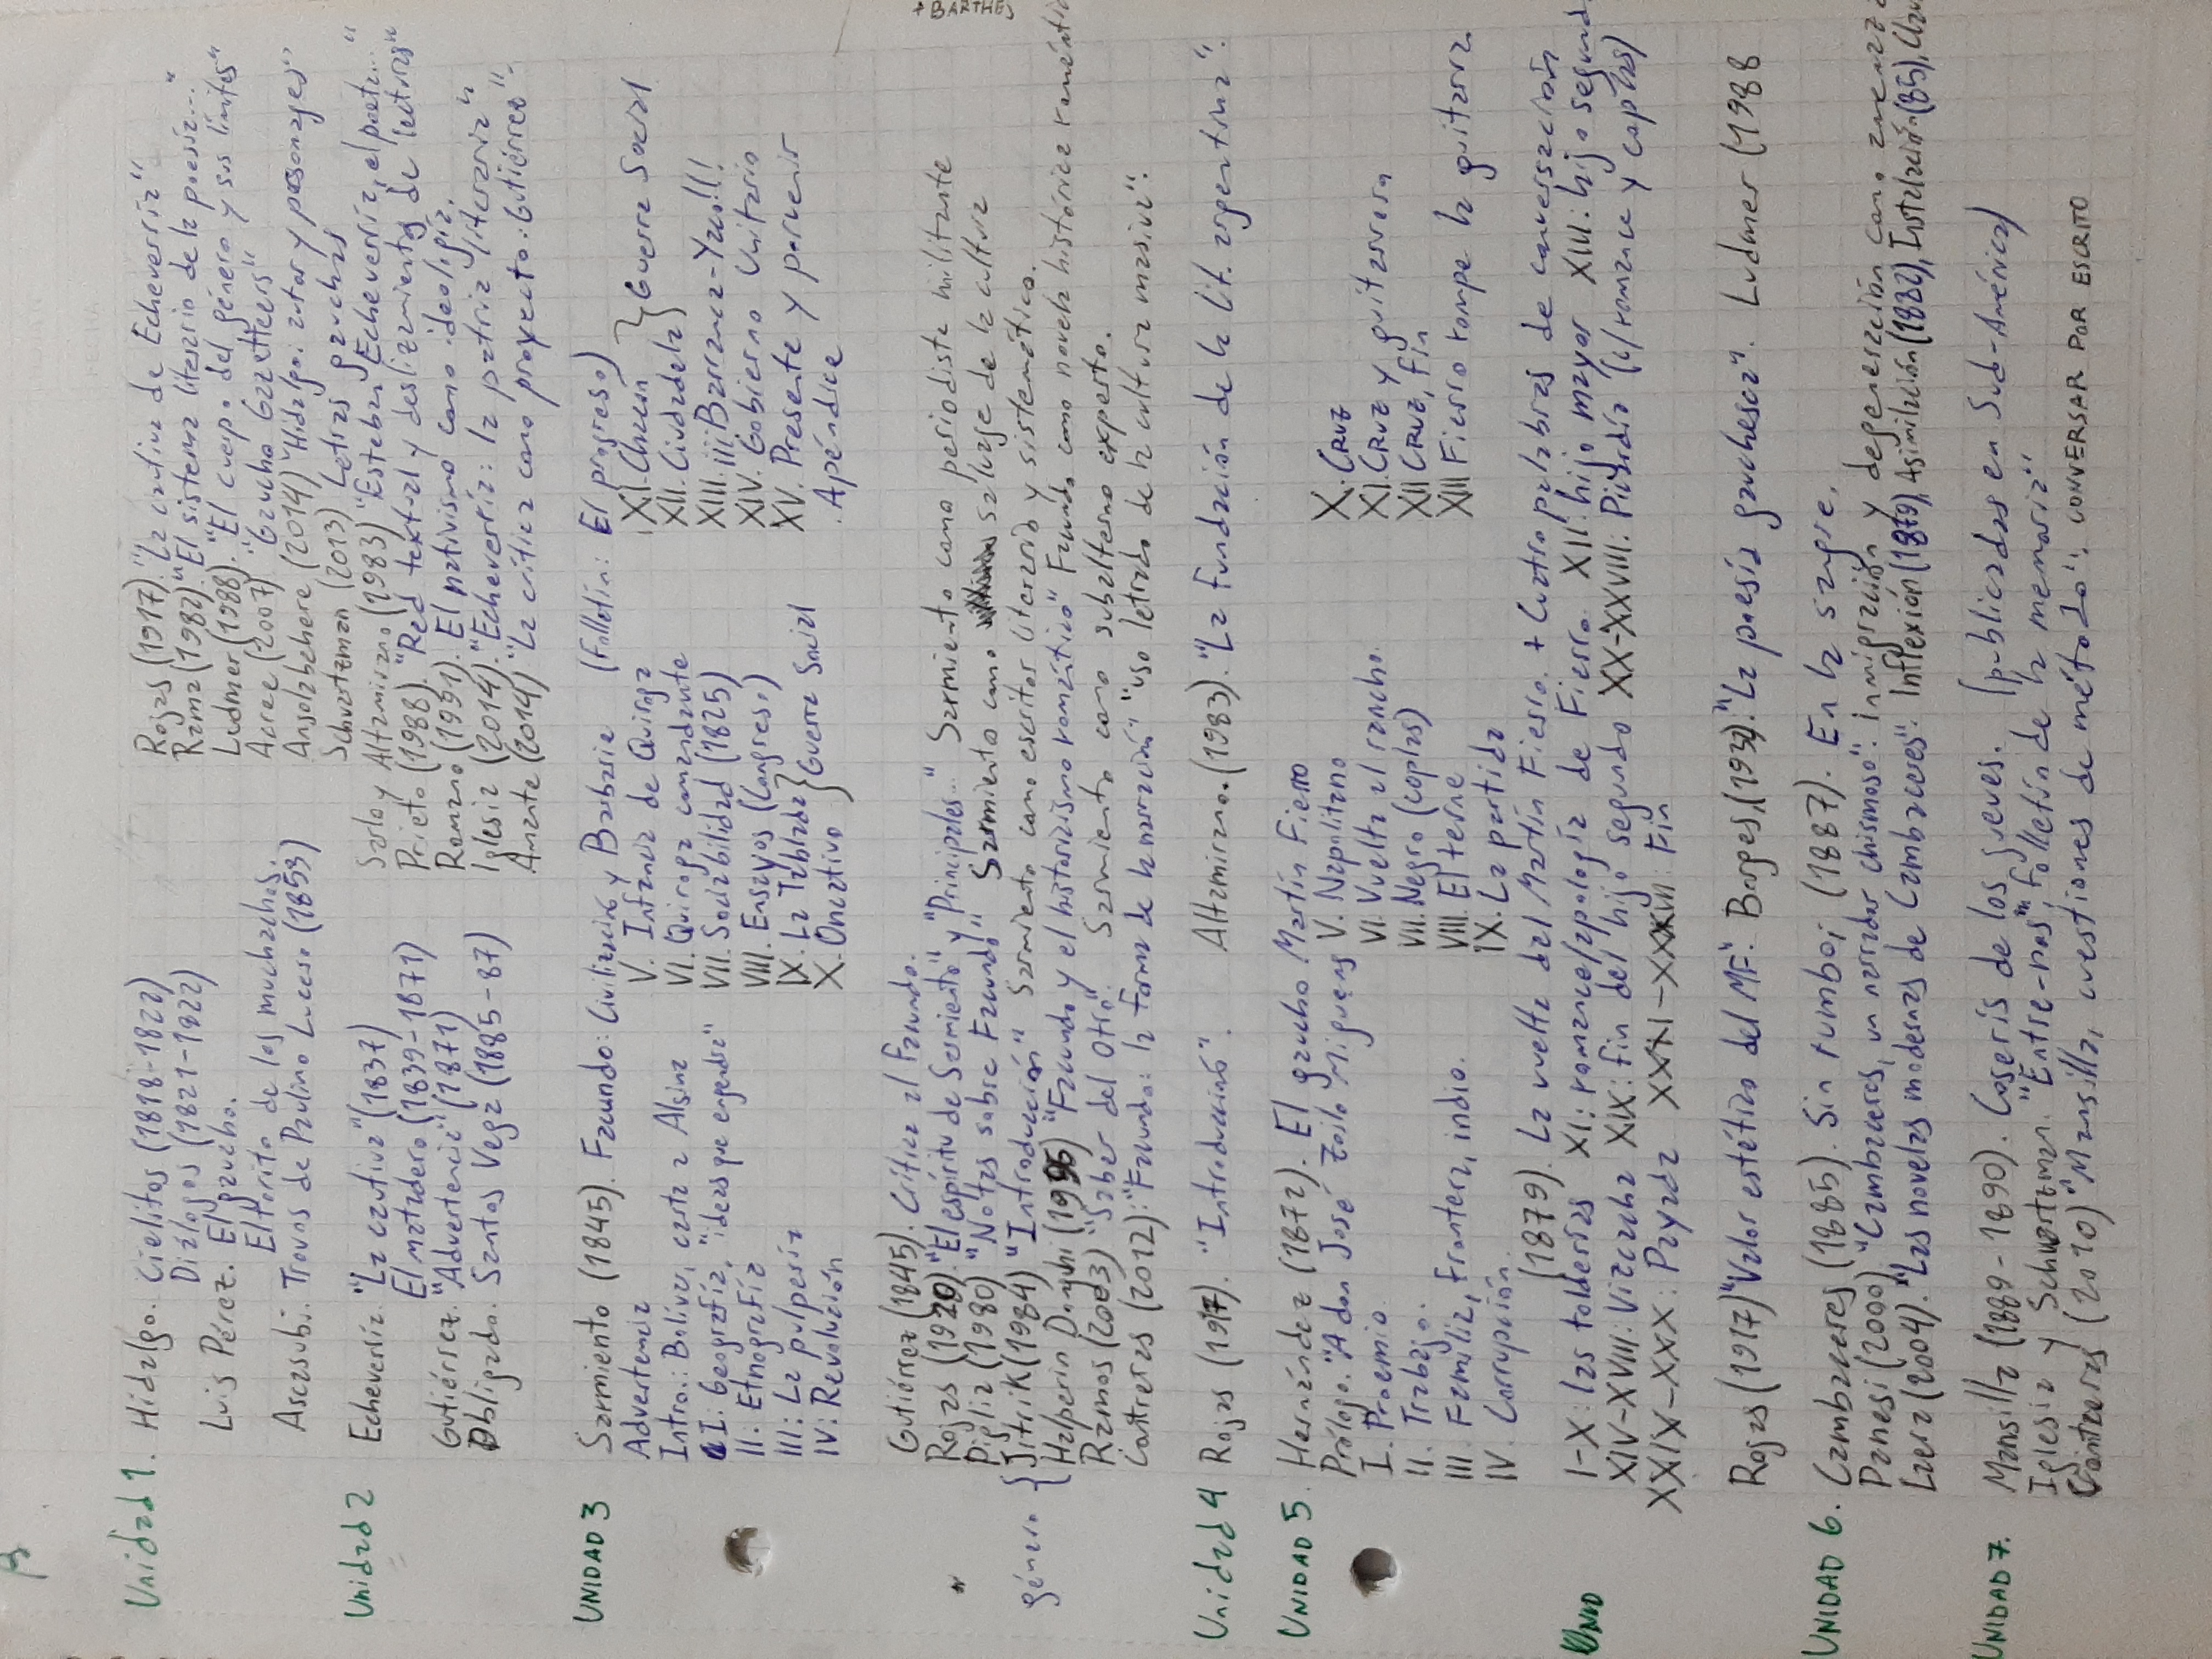 β
Unidad 1. Hidalgo. Cielitos (1818-1822)
Diálogos (1821-1822)
Luis Pérez. El gaucho.
El torito de los muchachos.
Ascasubi. Trovos de Paulino Lucero (1853)
Rojas (1917). "La cautiva de Echeverría"
Rama (1982) "El sistema literario de la poesía..."
Ludmer (1988). "El cuerpo del género y sus límites"
Acree (2007) "Gaucho Gazetteers"
Ansolabehere (2014) "Hidalgo: autor y personajes"
Schvartzman (2013) Letras gauchas
Unidad 2 Echeverría. "La cautiva" (1837)
El matadero (1839-1871)
Gutiérrez. "Advertencia" (1871)
Obligado. Santos Vega (1885-87)
Sarlo y Altamirano (1983) "Esteban Echeverría, el poeta..."
Prieto (1988). "Red textual y deslizamientos de lecturas"
Romano (1991). El nativismo como ideología.
Iglesia (2014). "Echeverría: la patria literaria"
Amante (2014) "La crítica como proyecto: Gutiérrez".
UNIDAD 3 Sarmiento (1845). Facundo: Civilización y Barbarie (Folletín: El progreso)
Advertencia
Intro.: Bolívar, carta a Alsina
I: Geografía, "ideas que engendra"
II: Etnografía
III: La pulpería
IV: Revolución
V. Infancia de Quiroga
VI. Quiroga comandante
VII. Sociabilidad (1825)
VIII. Ensayos (Congreso)
IX. La Tablada } Guerra Social
X. Oncativo
XI. Chacón } Guerra Social
XII. Ciudadela
XIII. ¡¡¡Barranca-Yaco!!!
XIV. Gobierno Unitario
XV. Presente y porvenir
. Apéndice
Gutiérrez (1845). Crítica al Facundo.
Rojas (1920). "El espíritu de Sarmiento" y "Principales..." Sarmiento como periodista militante
Piglia (1980) "Notas sobre Facundo" Sarmiento como salvaje de la cultura
género { Jitrik (1984) "Introducción" Sarmiento como escritor literario y sistemático.
Halperin Donghi (1996) "Facundo y el historicismo romántico" Facundo como novela histórica
Ramos (2003) "Saber del Otro". Sarmiento como subalterno experto.
Contreras (2012): "Facundo: la forma de la narración" "uso letrado de la cultura masiva".
+ BARTHES
Unidad 4 Rojas (1917). "Introducción". Altamirano. (1983). "La fundación de la lit. argentina".
UNIDAD 5. Hernández (1872). El gaucho Martín Fierro
Prólogo. "A don José Zoilo Miguens
I. Proemio
II. Trabajo.
III. Familia, frontera, indio.
IV. Corrupción.
V. Napolitano
VI. Vuelta al rancho.
VII. Negro (coplas)
VIII. El terne
IX. La partida
X. CRUZ
XI. CRUZ y guitarrera
XII CRUZ, fin
XIII Fierro rompe la guitarra.
(1879). La vuelta del Martín Fierro. + Cuatro palabras de conversación
UNID I-X: las tolderías XI: romance/apología de Fierro. XII: hijo mayor XIII: hijo segund
XIV-XVIII: Vizcacha XIX: fin del hijo segundo XX-XXVIII: Picardía (c/romance y coplas)
XXIX-XXX: Payada XXXI-XXXIII: Fin
Rojas (1917) "Valor estético del MF". Borges, (1932). "La poesía gauchesca". Ludmer (1988
UNIDAD 6. Cambaceres (1885). Sin rumbo; (1887). En la sangre.
Panesi (2000) "Cambaceres, un narrador chismoso". inmigración y degeneración como
Laera (2004). "Las novelas modernas de Cambaceres". Inflexión (1879), Asimilación (1882), Instalación (85),
UNIDAD 7. Mansilla (1889-1890). Coserís de los jueves. (publicadas en Sud-América)
Iglesia y Schvartzman. "Entre-nos", folletín de la memoria"
Contreras (2010) "Mansilla, cuestiones de método". CONVERSAR POR ESCRITO